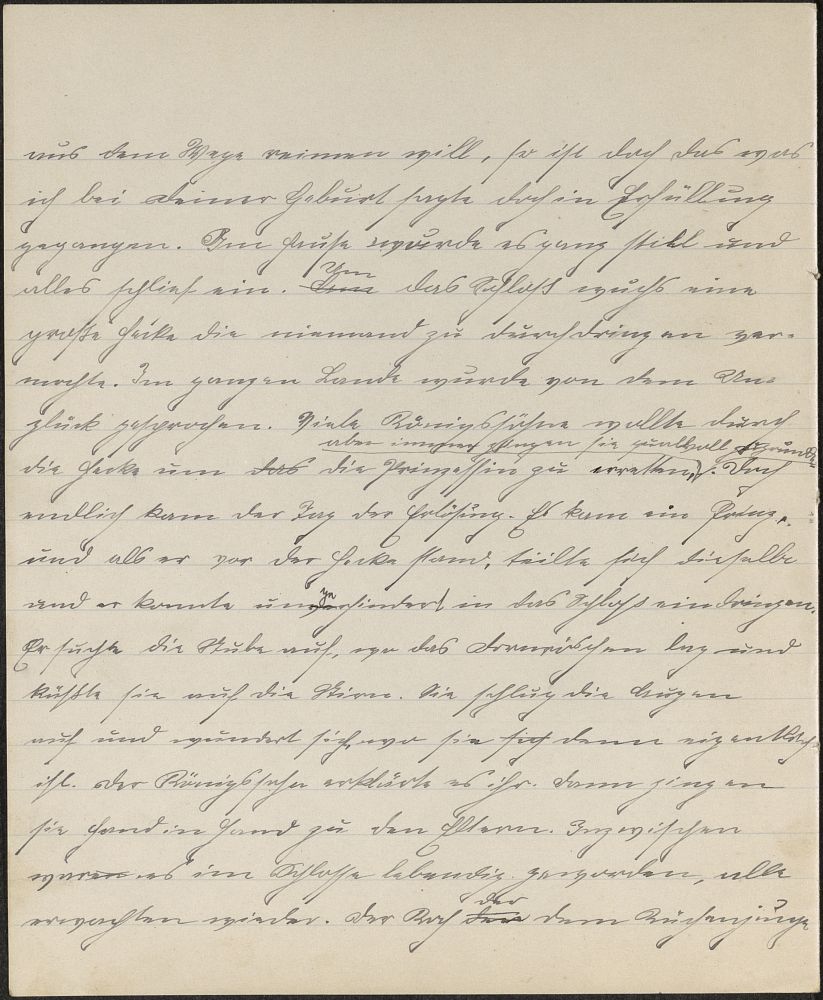 aus dem Wege reimen will, so ist doch das was
ich bei Deiner Geburt sagte doch in Erfüllung
gegangen. Im Hause wurde es ganz still und
alles schlief ein. Um das Schloß wuchs eine
große Hecke die niemand zu durchdringen ver-
mochte. Im ganzen Lande wurde von dem Un-
glück gesprochen. Viele Königssöhne wollte durch
aber immer gingen sie qualvoll zugrunde
die Hecke um das die Prinzessin zu erretten. Doch
endlich kam der Tag der Erlösung. Es kam ein Prinz,
und als er vor der Hecke stand, teilte sich dieselbe
und er konnte ungehindert in das Schloß eindringen.
Er suchte die Stube auf, wo das Dornröschen lag und
küßte sie auf die Stirn. Sie schlug die Augen
auf und wundert sich, wo sie sich denn eigentlich
ist. Der Königssohn erklärte es ihr. Dann gingen
sie Hand in Hand zu den Eltern. Inzwischen
waren es im Schlosse lebendig geworden, alle
erwachten wieder. Der Koch der dem Küchenjunge